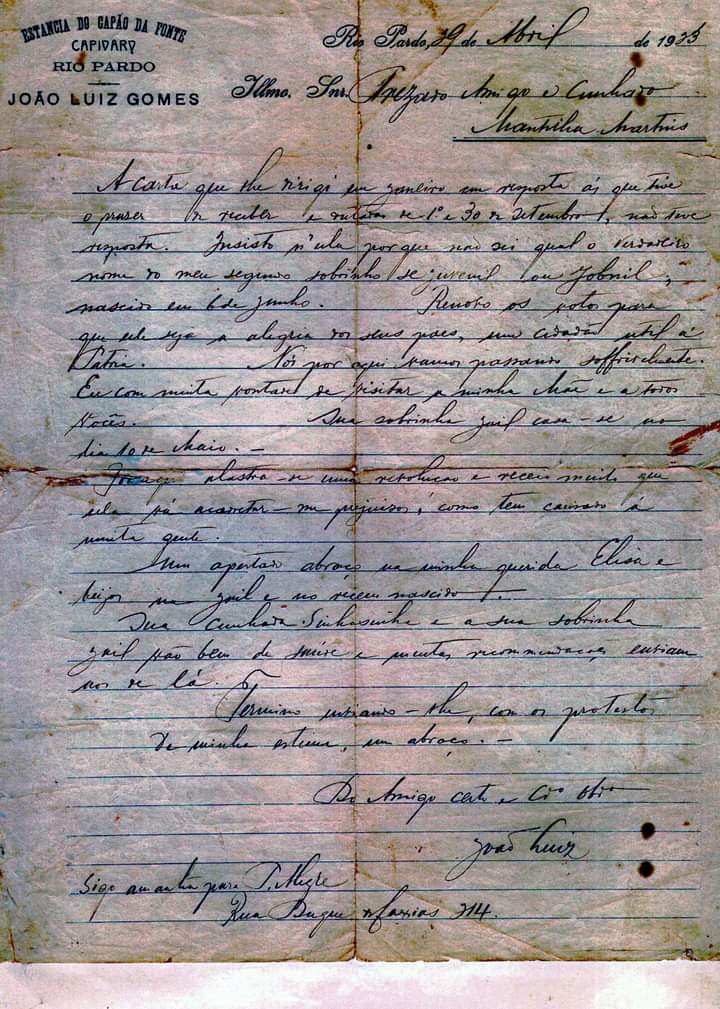 ESTANCIA DO CAPÃO DA FONTE
CAPIVARY
RIO PARDO
JOÃO LUIZ GOMES
Rio Pardo, 29 de Abril de 1923
Illmo. Snr. Prezado Amigo e Cunhado
Martins
A carta que lhe dirigi em janeiro em resposta ás que tive
o prazer de receber e datadas de 1º e 30 de Setembro, não teve
resposta. Insisto n'ella por que não sei qual o verdadeiro
nome do meu segundo sobrinho se Juvenil ou Jobnil,
nascido em 6 de Junho. Renovo os votos para
que elle seja a alegria dos seus paes, um cidadão util á
Patria. Nós por aqui vamos passando soffrivelmente.
Eu com muita vontade de visitar a minha Mãe e a todos
Vocês. Sua sobrinha Zail casa-se no
dia 10 de Maio. —
Por aqui alastra-se uma revolução e receio muito que
ella vá acarretar-me prejuizos, como tem causado á
muita gente.
Um apertado abraço na minha querida Elisa e
beijos na Zail e no recem nascido.
Sua cunhada Sinhasinha e a sua sobrinha
Zail vão bem de saúde e muitas recommendações enviam
aos de lá.
Termino enviando-lhe, com os protestos
de minha estima, um abraço. —
Do Amigo certo e Cdo Obro
João Luiz
Sigo amanhã para P. Alegre
Rua Duque de Caxias 214.